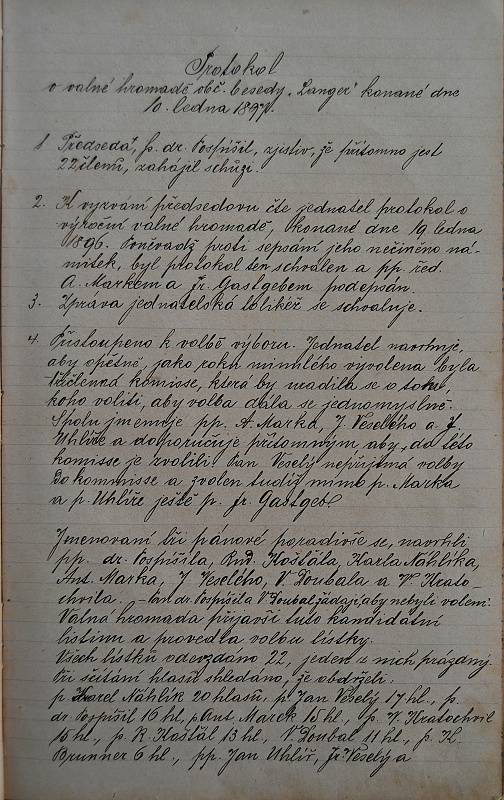 Protokol
o valné hromadě obč. besedy „Langer" konané dne
10. ledna 1897.
1. Předseda, p. dr. Pospíšil, zjistiv, že přítomno jest
22 členů, zahájil schůzi.
2. K vyzvání předsedovu čte jednatel protokol o
výroční valné hromadě, konané dne 19 ledna
1896. Poněvadž proti sepsání jeho nečiněno ná-
mitek, byl protokol ten schválen a pp. řed.
A. Markem a Fr. Gastgebem podepsán.
3. Zpráva jednatelská tolikéž se schvaluje.
4. Přistoupeno k volbě výboru. Jednatel navrhuje,
aby opětně, jako roku minulého vyvolena byla
tříčlenná komisse, která by uradila se o tom,
koho voliti, aby volba dála se jednomyslně.
Spolu jmenuje pp. A. Marka, J. Veselého a J.
Uhlíře a doporučuje přítomným aby do této
komisse je zvolili. Pan Veselý nepřijímá volby
do kommisse a zvolen tudíž mimo p. Marka
a p. Uhlíře ještě p. Fr. Gastgeb.
Jmenovaní tři pánové poradivše se, navrhli
pp. dr. Pospíšila, Rud. Košťála, Karla Náhlíka,
Ant. Marka, J. Veselého, V. Doubala a V. Krato-
chvíla. – Pan dr. Pospíšil a V. Doubal žádají, aby nebyli voleni.
Valná hromada přijavši tuto kandidátní
listinu a provedla volbu lístky.
Všech lístků odevzdáno 22, jeden z nich prázdný.
Při sčítání hlasů shledáno, že obdrželi:
p. Karel Náhlík 20 hlasů, p. Jan Veselý 17 hl., p.
dr. Pospíšil 16 hl., p. Ant. Marek 15 hl., p. V. Kratochvíl
hl., p. R. Košťál 13 hl., V. Doubal 11 hl., p. K.
Brunner 6 hl., pp. Jan Uhlíř, Fr. Veselý a